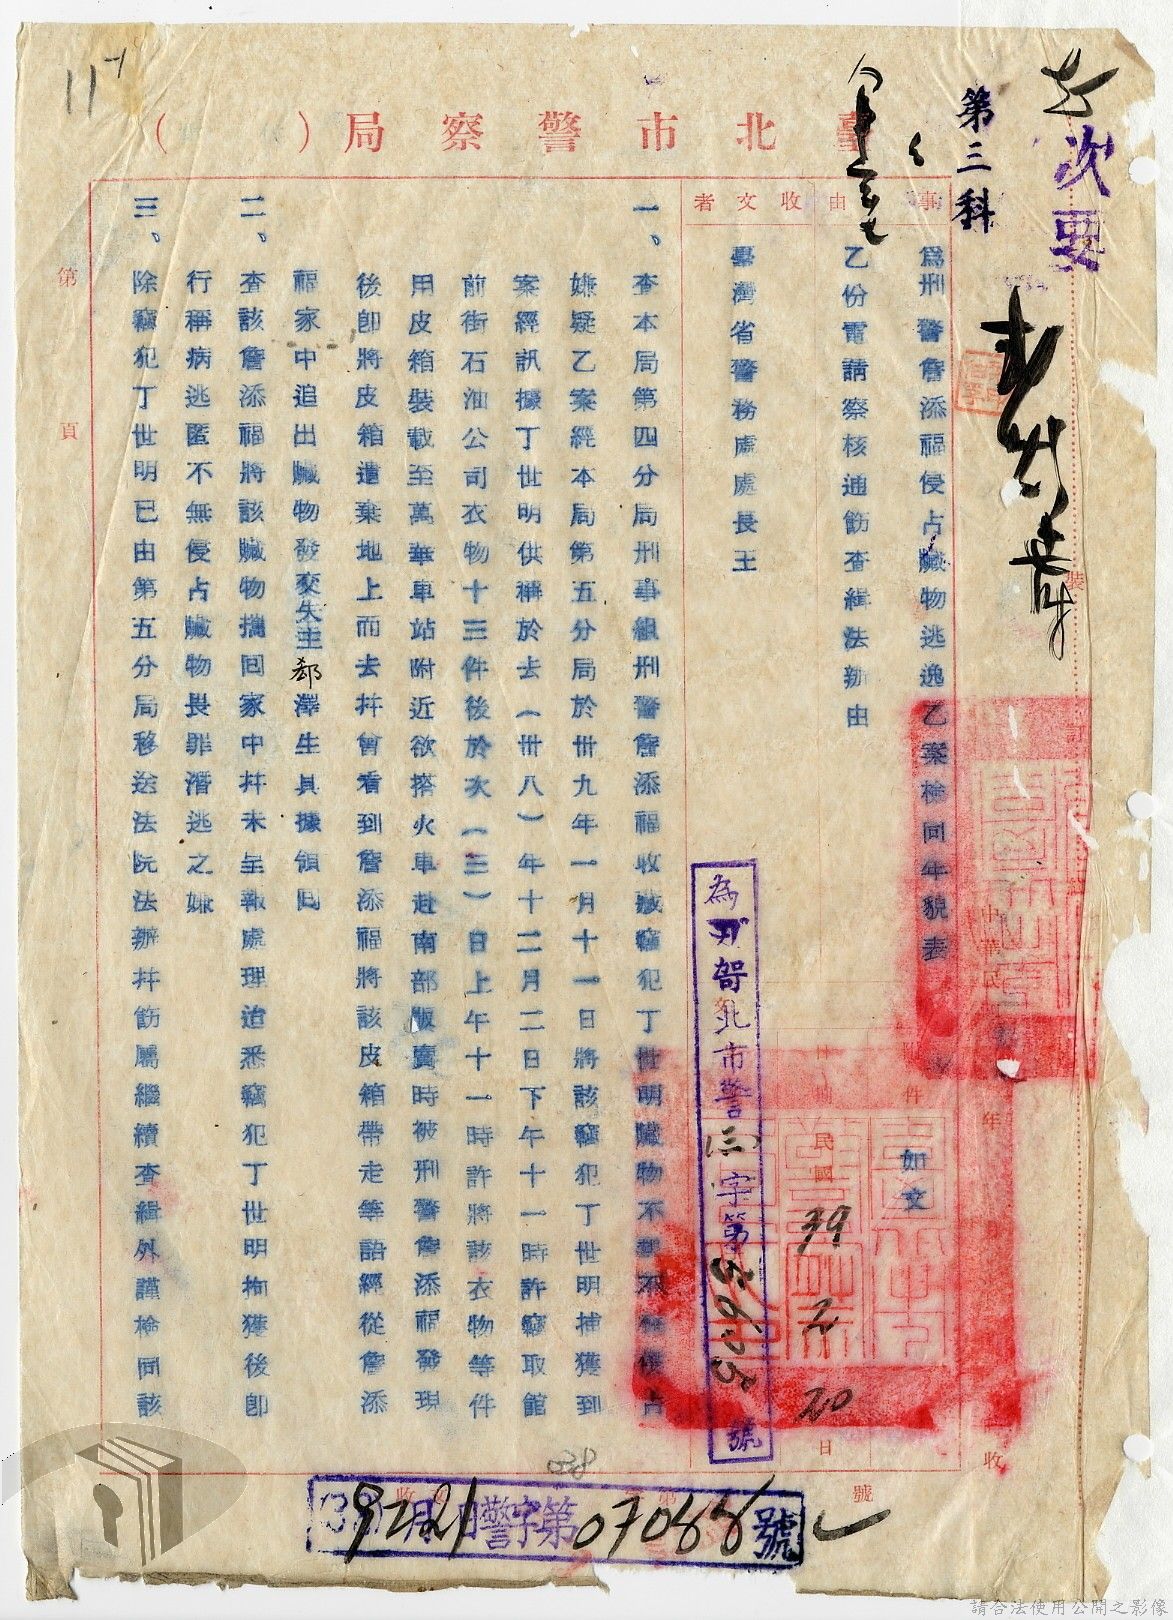 臺北市警察局（　）
次要
第三科
事由
為刑警詹添福侵占贓物逃逸乙案檢同年貌表
乙份電請察核通飭查緝法辦由
收文者
臺灣省警務處處長王
件
如文
中華民國
年
民國
39
2
20
日
北市警
字第
號
一、查本局第四分局刑事組刑警詹添福收竊犯丁世明贓物不侵占
嫌疑乙案經本局第五分局於卅九年一月十一日將該竊犯丁世明捕獲到
案經訊據丁世明供稱於去（卅八）年十二月二日下午十一時許竊取館
前街石油公司衣物十三件後於次（三）日上午十一時許將該衣物等件
用皮箱裝載至萬華車站附近欲搭火車赴南部販賣時被刑警詹添福發現
後卽將皮箱遺棄地上而去并曾看到詹添福將該皮箱帶走等語經從詹添
福家中追出贓物發交失主郝澤生具據領回
二、查該詹添福將該贓物攜回家中并未呈報處理迨悉竊犯丁世明拘獲後卽
行稱病逃匿不無侵占贓物畏罪潛逃之嫌
三、除竊犯丁世明已由第五分局移送法院法辦并飭屬繼續查緝外謹檢同該
第
頁
裝
訂
收
號
月 日警字第 號
11
038
請合法使用公開之影像